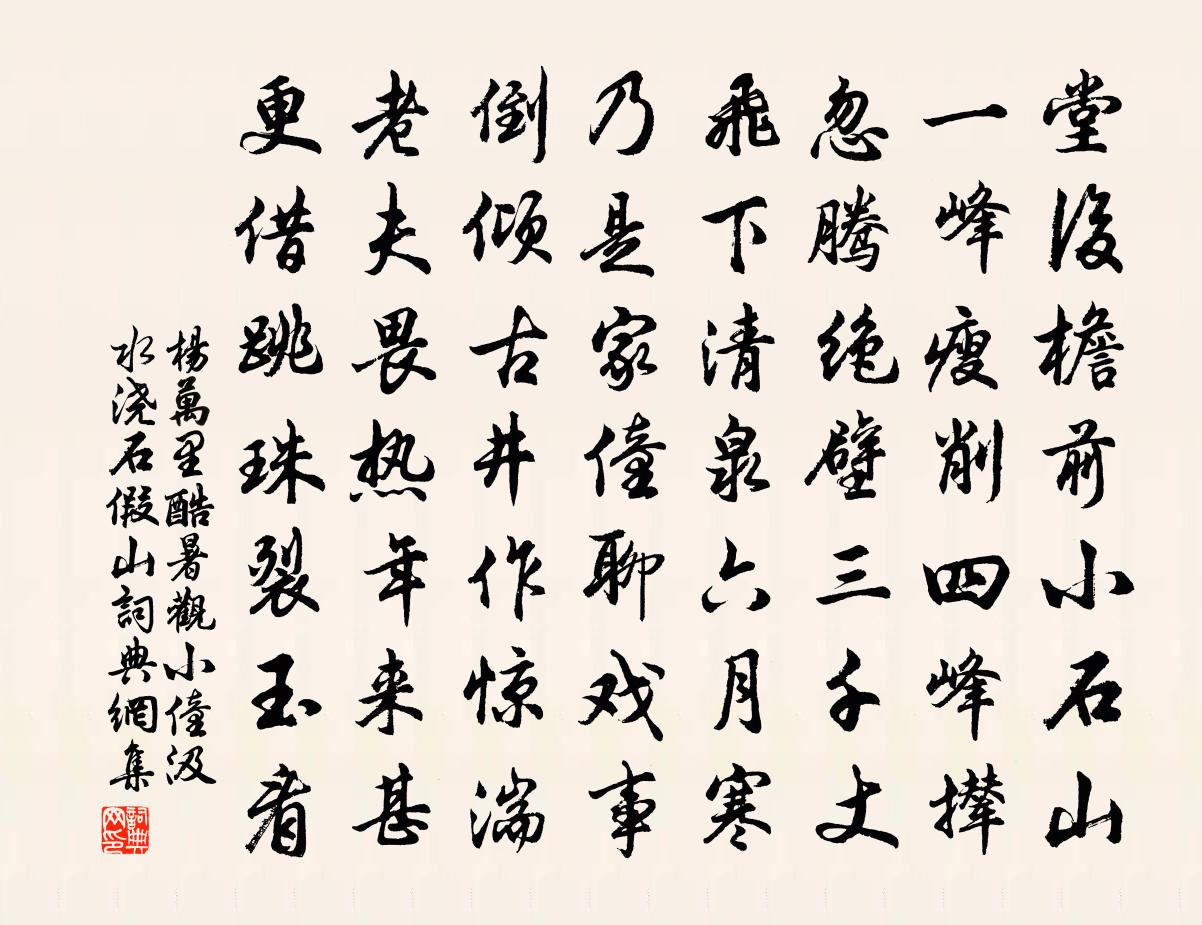 堂後檐前小石山
一峰瘦削四峰攆
忽腾绝壁三千丈
飛下清泉六月寒
乃是家僮聊戏事
倒倾古井作惊湍
老夫畏热年来甚
更借跳珠裂玉看
楊萬里酷暑觀小僮汲
水浇石假山詞典網集
詞典網印